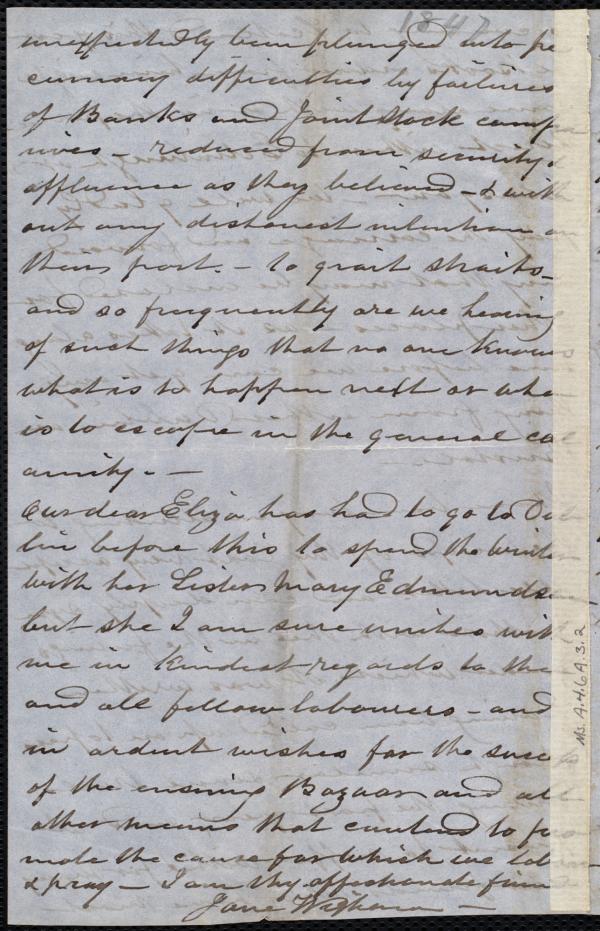 1847
unexpectedly been plunged into pe
cuniary difficulties by failures
of Banks and Joint Stock compa
nies – reduced from security &
affluence as they believed – & with
out any dishonest intention on
their part. – to great straits –
and so frequently are we hearing
of such things that no one knows
what is to happen next or who
is to escape in the general cal
amity. –
Our dear Eliza has had to go to Dub
lin before this to spend the winter
with her Sister Mary Edmundson
but she I am sure unites with
me in kindest regards to thee
and all fellow labourers – and
in ardent wishes for the success
of the ensuing Bazaar and all
other means that contend to pro
mote the cause for which we labour
& pray – I am thy affectionate friend
Jane Wigham –
Ms. A.4.6A.3.2